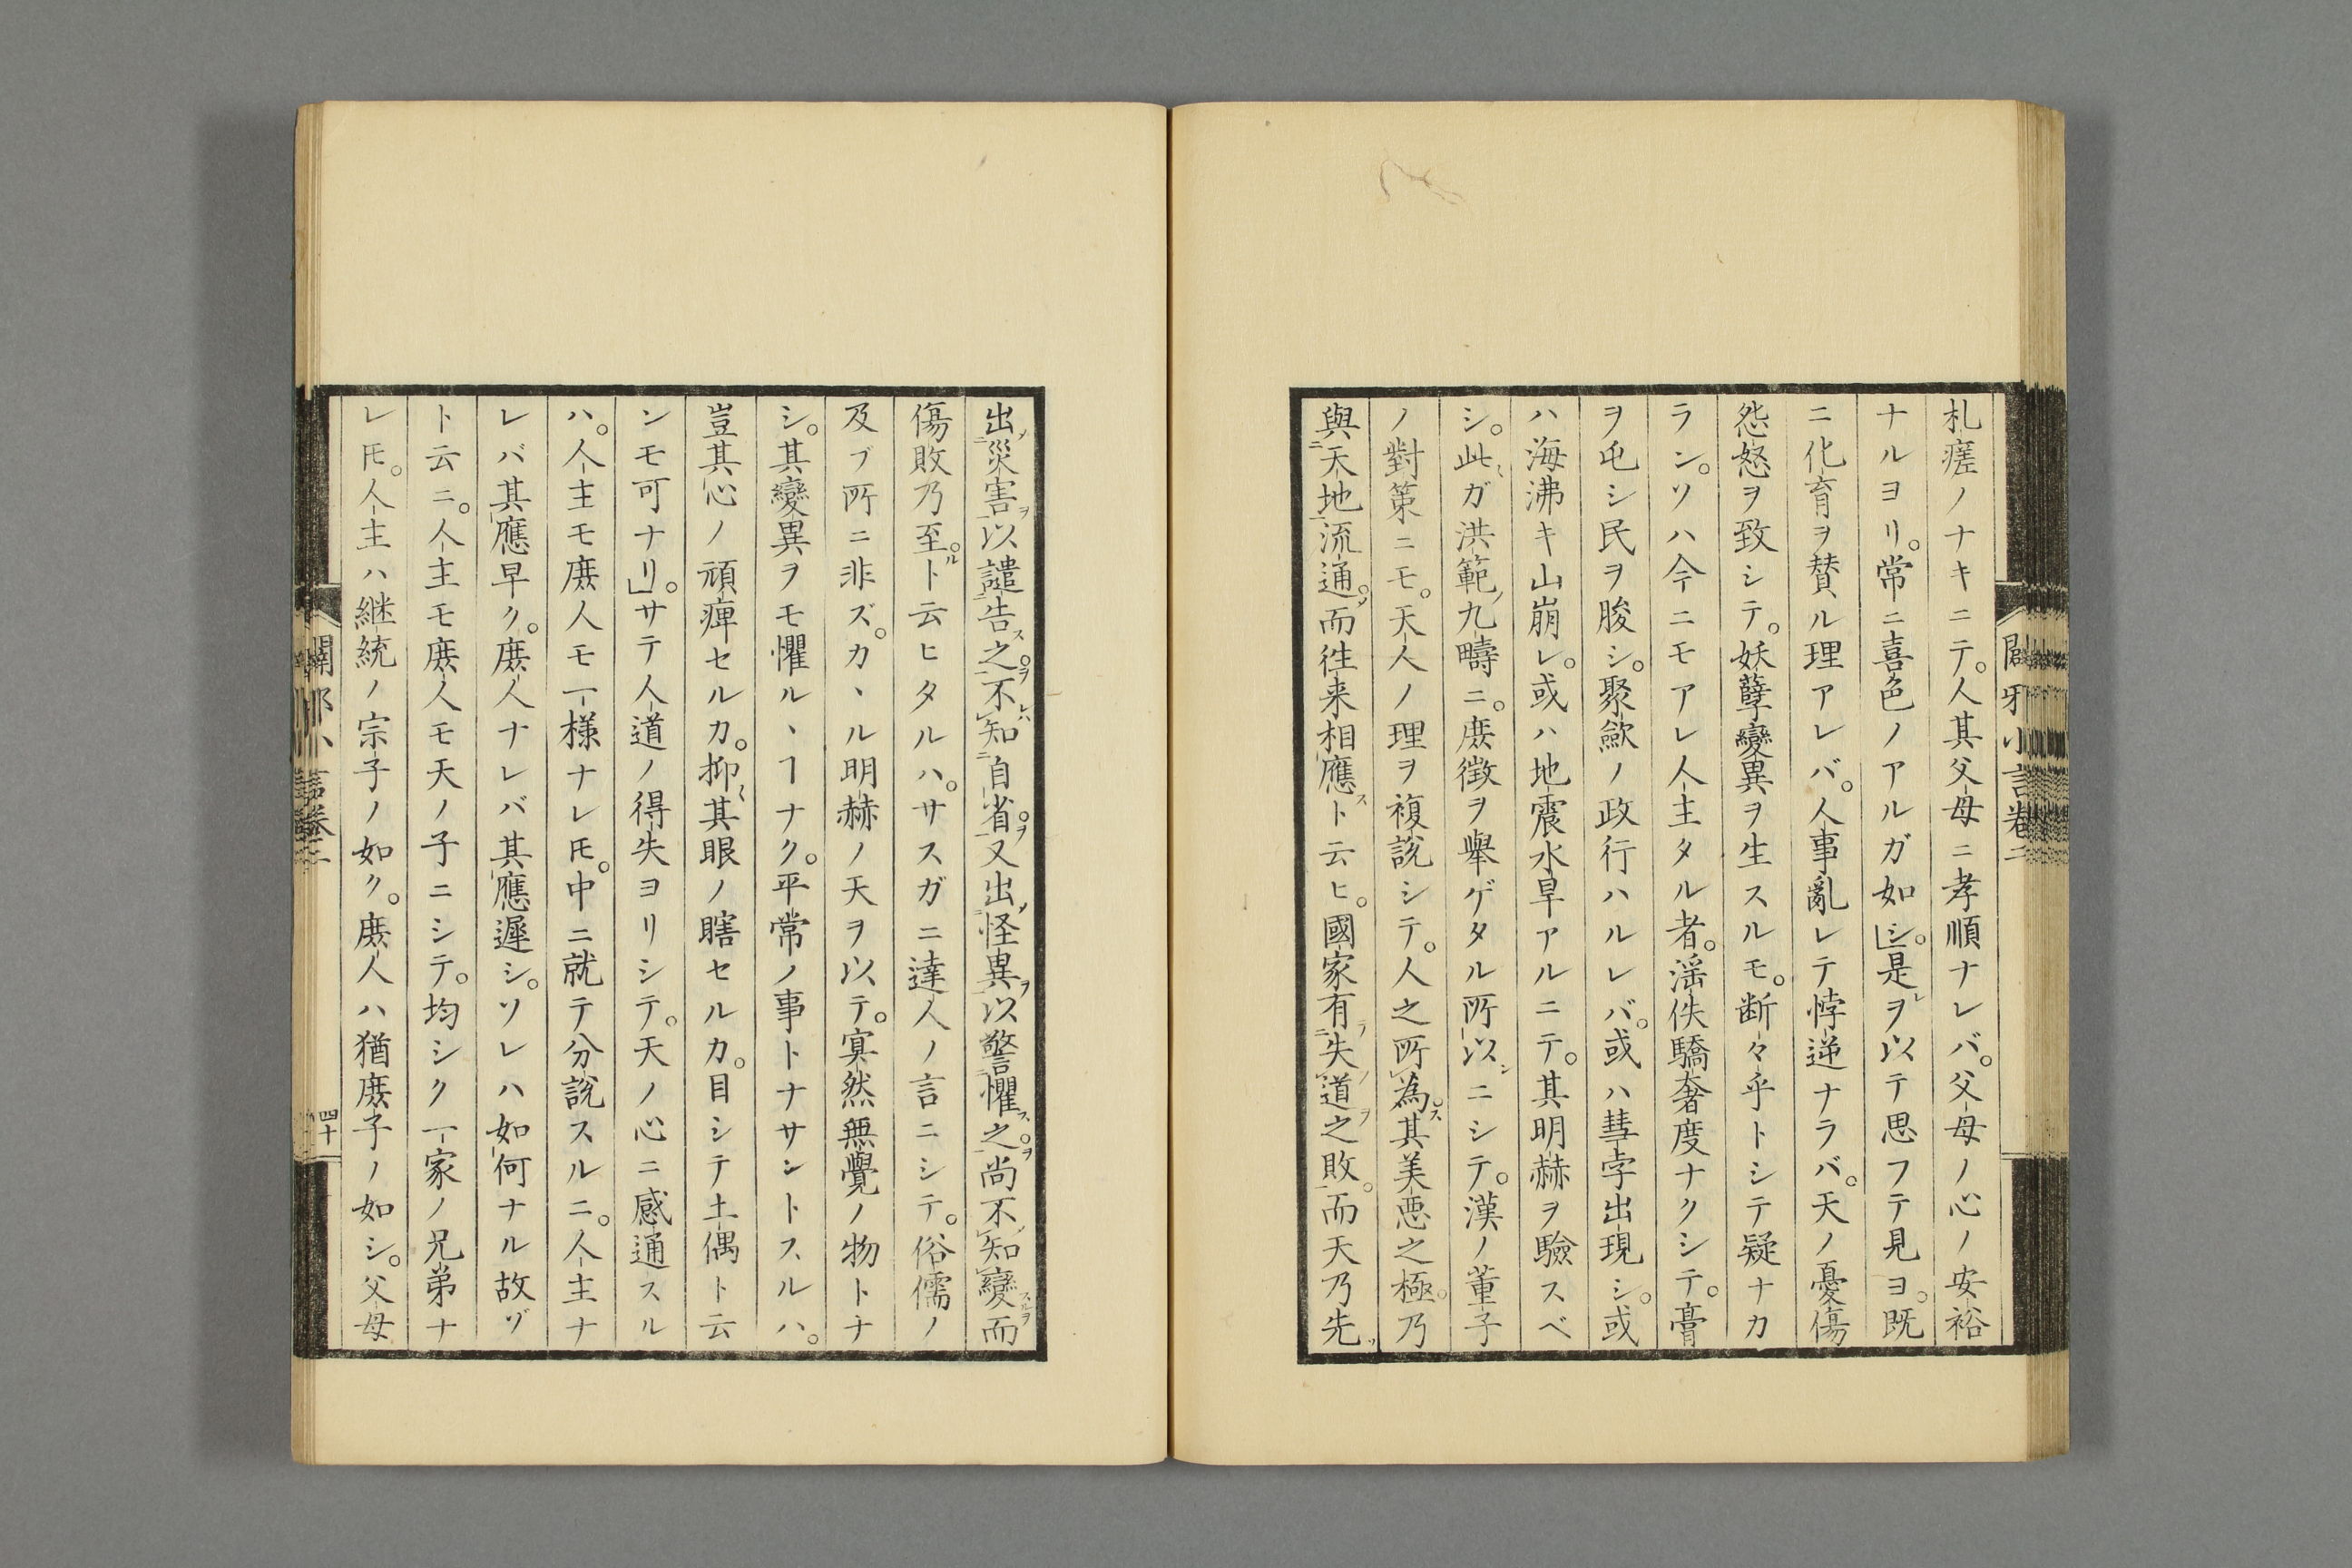 札瘥ノナキニテ。人其父母ニ孝順ナレバ。父母ノ心ノ安裕
ナルヨリ。常ニ喜色ノアルガ如シ」。是ヲ以テ思フテ見ヨ。既
ニ化育ヲ賛ル理アレバ。人事亂レテ悖逆ナラバ。天ノ憂傷
怨怒ヲ致シテ。妖孽變異ヲ生スルモ。断々乎トシテ疑ナカ
ラン。ソハ今ニモアレ人主タル者。淫佚驕奢度ナクシテ。膏
ヲ屯シ民ヲ朘シ。聚歛ノ政行ハルレバ。或ハ彗孛出現シ。或
ハ海沸キ山崩レ。或ハ地震水旱アルニテ。其明赫ヲ驗スベ
シ。此ガ洪範九疇ニ。庶徴ヲ舉ゲタル所以ニシテ。漢ノ董子
ノ對策ニモ。天人ノ理ヲ複說シテ。人之所為。其美悪之極。乃
與天地流通。而往来相應ト云ヒ。國家有失道之敗。而天乃先
出災害以譴告之。不知自省。又出怪異以警懼之。尚不知變而
傷敗乃至。ト云ヒタルハ。サスガニ達人ノ言ニシテ。俗儒ノ
及ブ所ニ非ズ。カヽル明赫ノ天ヲ以テ。冥然無覺ノ物トナ
シ。其變異ヲモ懼ルヽヿナク。平常ノ事トナサントスルハ。
豈其心ノ頑痺セルカ。抑其眼ノ瞎セルカ。目シテ土偶ト云
ンモ可ナリ」。サテ人道ノ得失ヨリシテ。天ノ心ニ感通スル
ハ。人主モ庶人モ一様ナレ𪜈。中ニ就テ分說スルニ。人主ナ
レバ其應早ク。庶人ナレバ其應遲シ。ソレハ如何ナル故ゾ
ト云ニ。人主モ庶人モ天ノ子ニシテ。均シク一家ノ兄弟ナ
レ𪜈。人主ハ継統ノ宗子ノ如ク。庶人ハ猶庶子ノ如シ。父母
四十